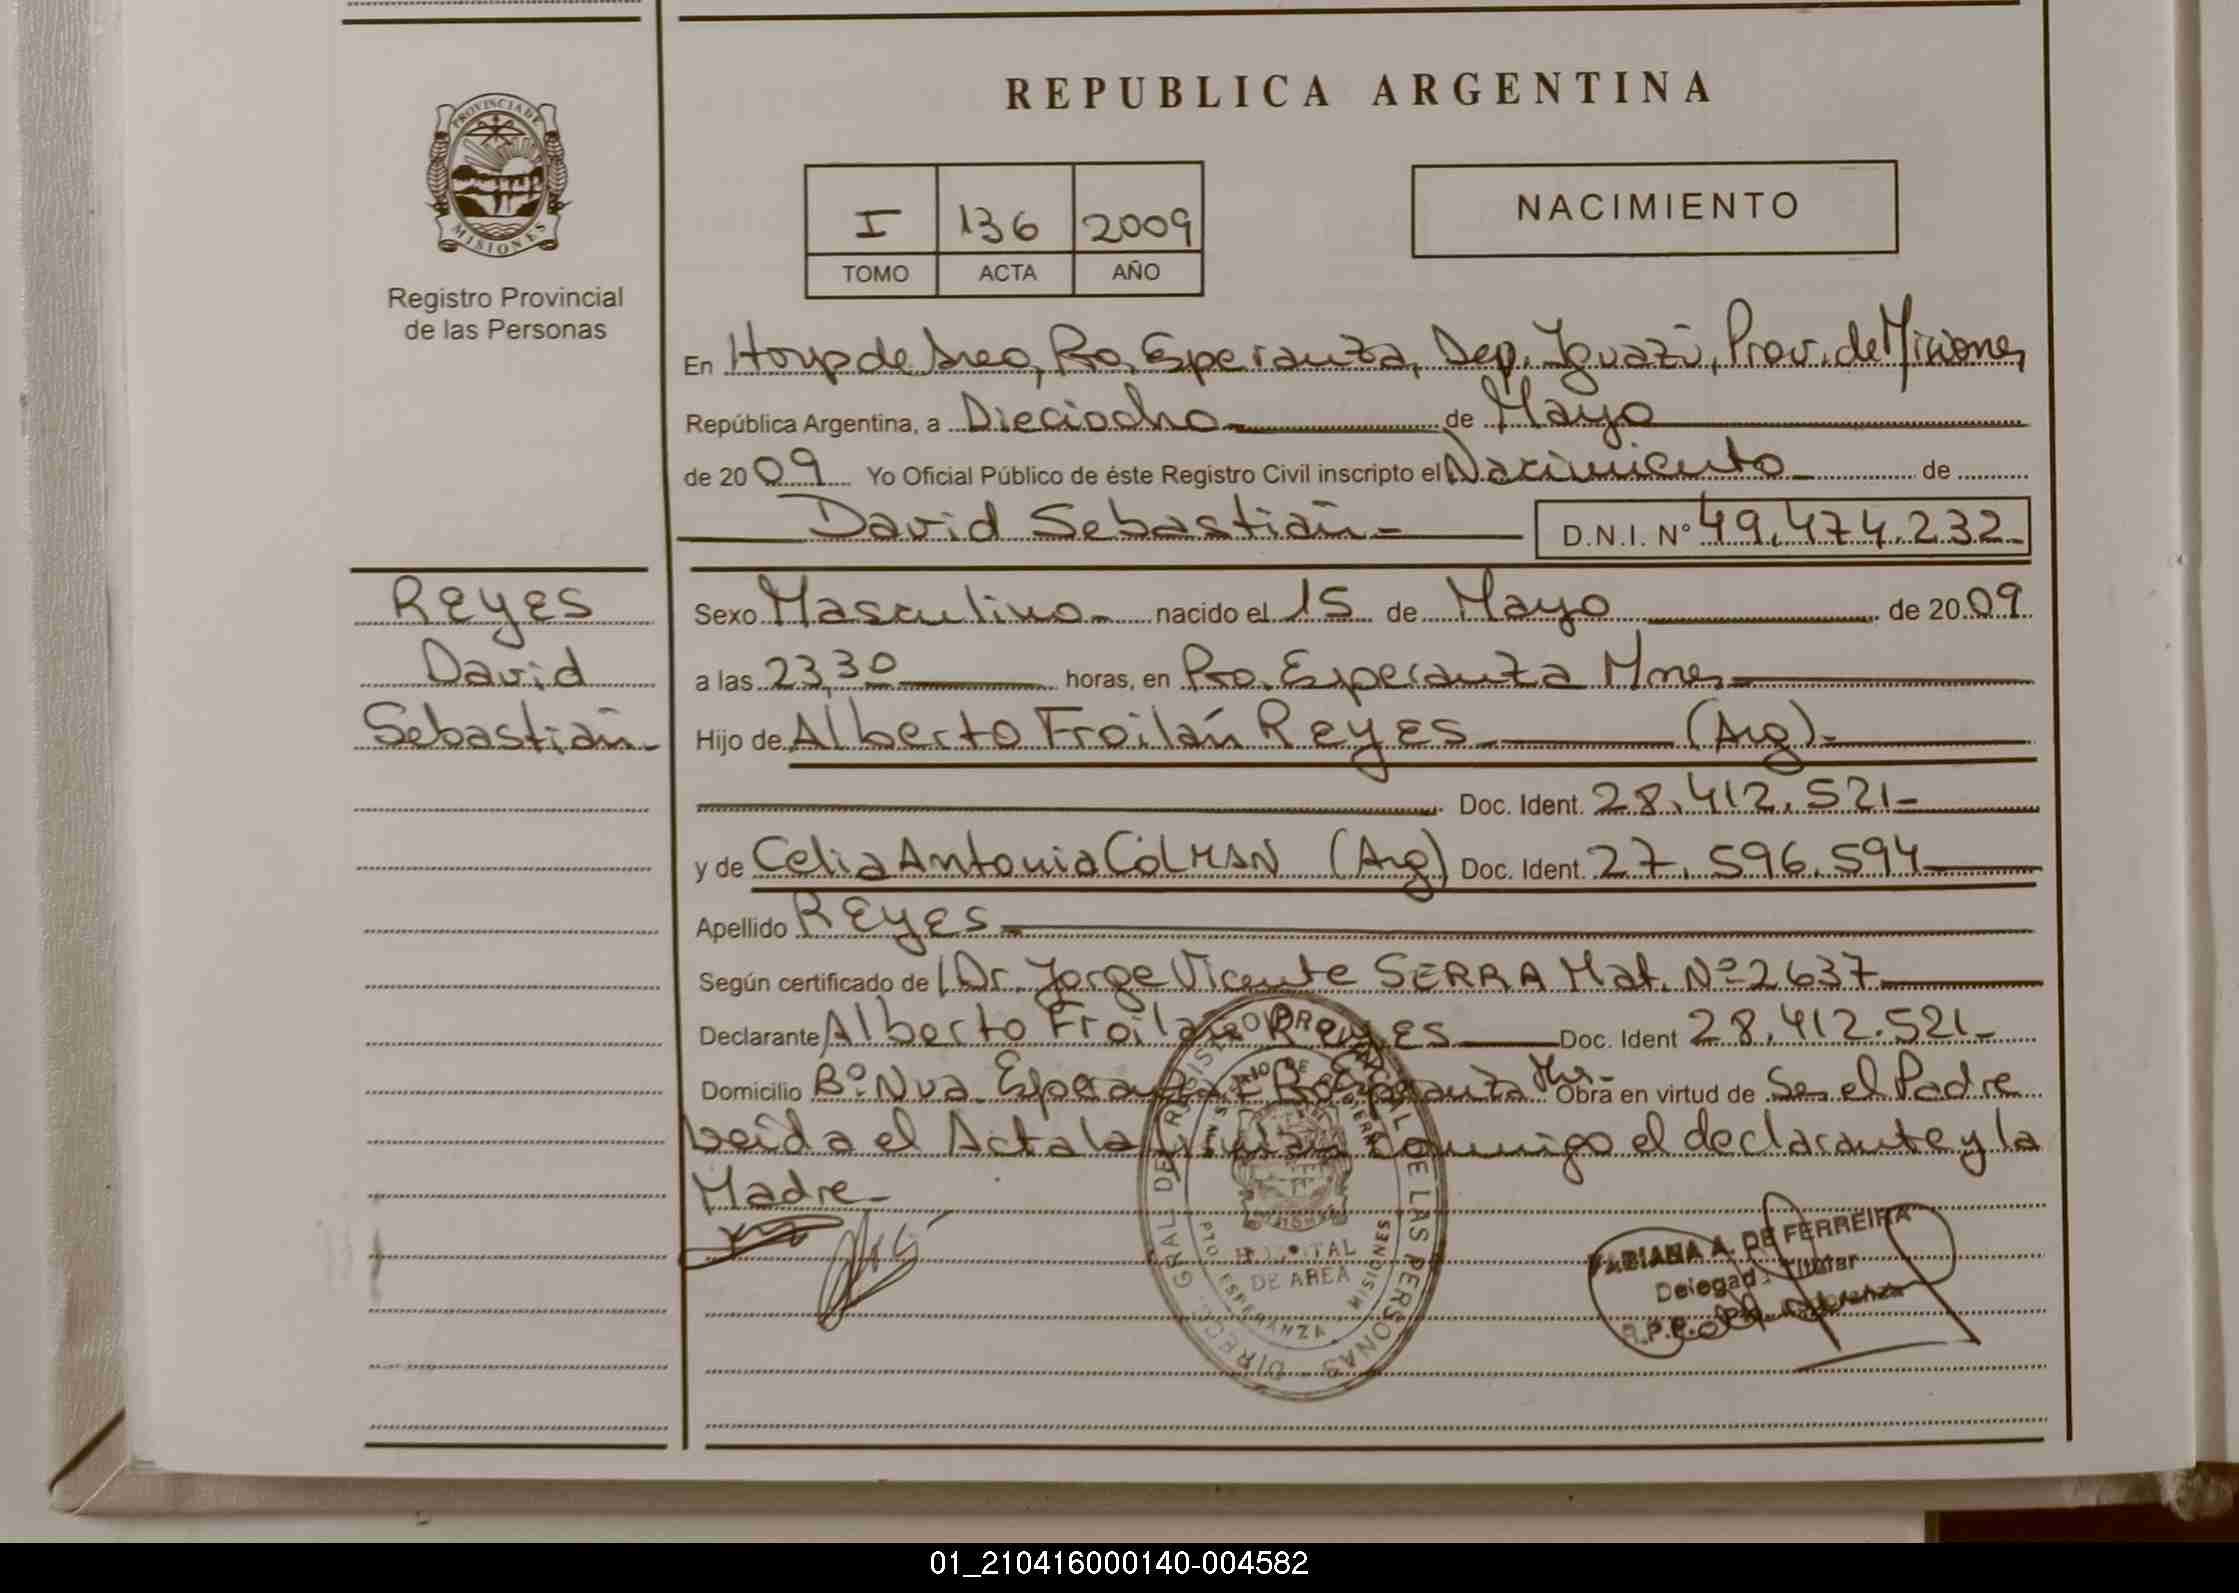 REPUBLICA ARGENTINA
PROVINCIA DE MISIONES
Registro Provincial
de las Personas
I 136 2009
TOMO ACTA AÑO
NACIMIENTO
En Hosp de Area, Pto. Esperanza, Dep. Iguazú, Prov. de Misiones
República Argentina, a Dieciocho de Mayo
de 2009 Yo Oficial Público de éste Registro Civil inscripto el Nacimiento de
David Sebastián D.N.I. Nº 49.474.232
Reyes
David
Sebastián
Sexo Masculino nacido el 15 de Mayo de 2009
a las 23,30 horas, en Pto. Esperanza Mnes
Hijo de Alberto Froilán Reyes (Arg).
Doc. Ident. 28.412.521
y de Celia Antonia COLMAN (Arg) Doc. Ident. 27.596.594
Apellido Reyes
Según certificado de Dr. Jorge Vicente SERRA Mat. Nº 2637
Declarante Alberto Froilán Reyes Doc. Ident 28.412.521
Domicilio Bº Nva. Esperanza Pto Esperanza Mns Obra en virtud de Ser el Padre
Leída el Acta la firman conmigo el declarante y la
Madre
DIRECC. GRAL DE REGISTRO PROVINCIAL DE LAS PERSONAS
HOSPITAL
DE AREA
PTO ESPERANZA MISIONES
FABIANA A. DE FERREIRA
Delegada Titular
R.P.P. Pto. Esperanza
01_210416000140-004582